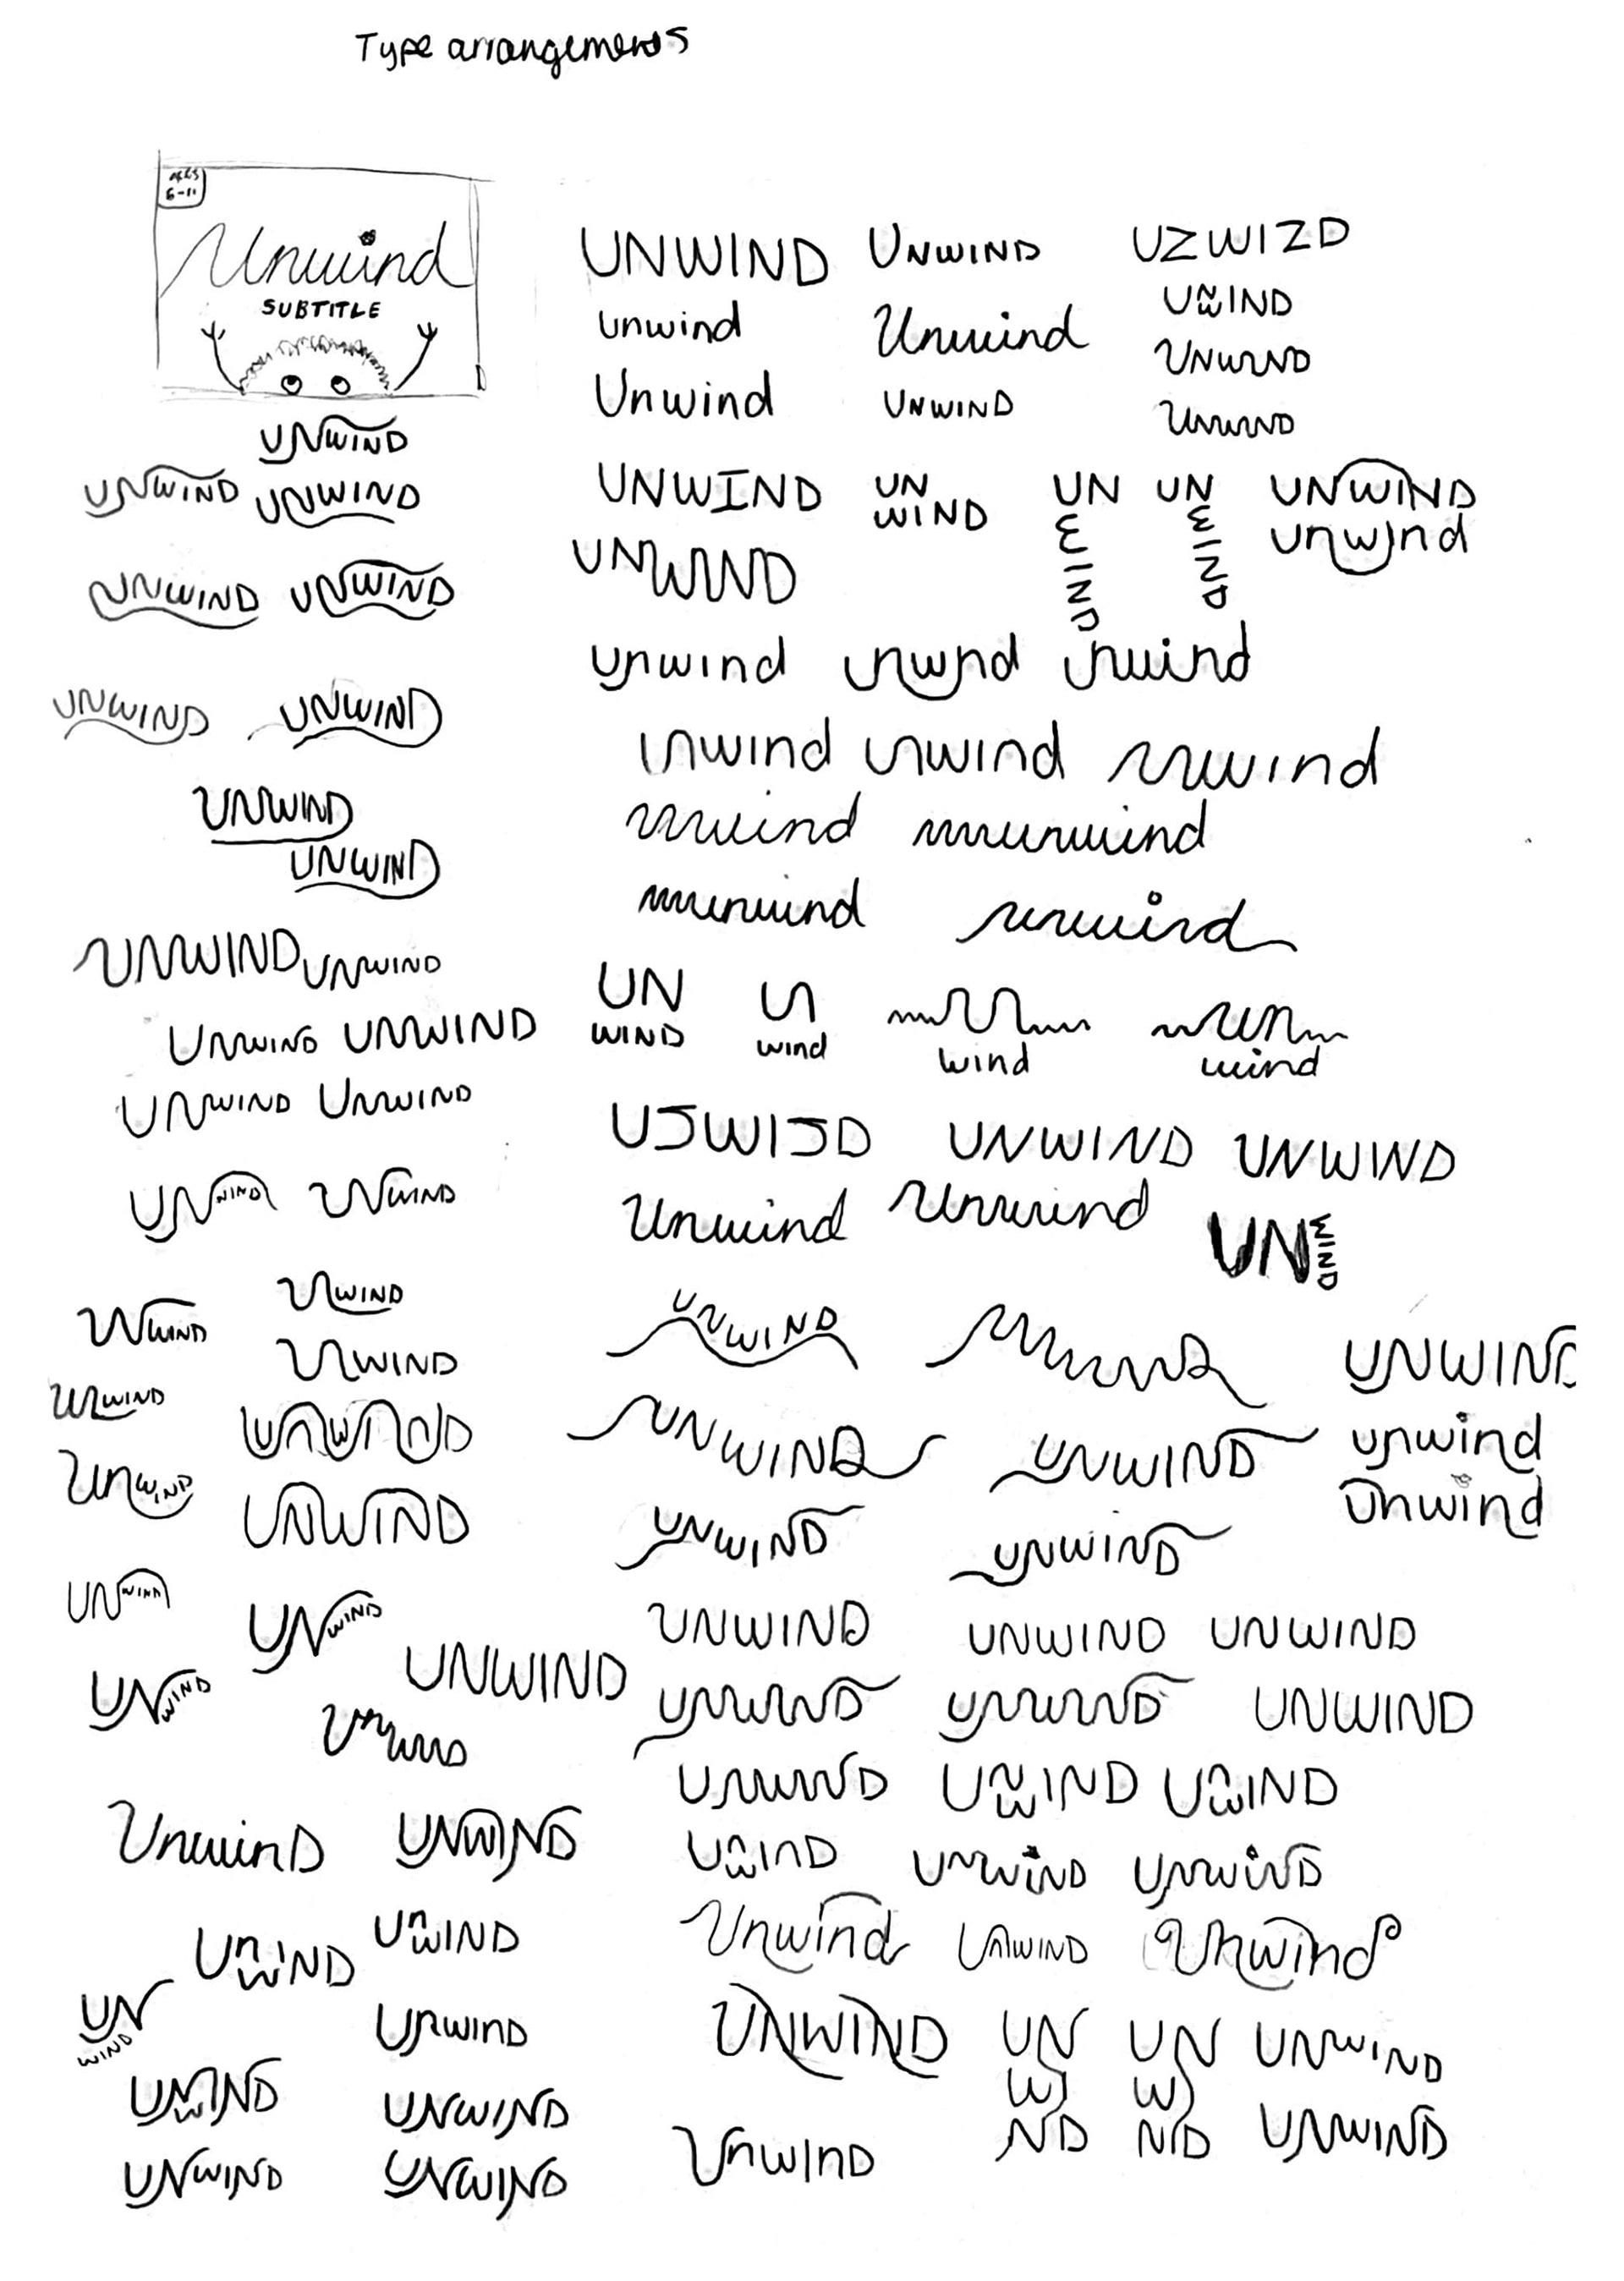 Type arrangements
AGES
6-11
Unwind
SUBTITLE
UNWIND UNWIND UZWIZD
UNWIND
unwind Unwind
UNWIND
Unwind UNWIND
UNWIND
UNWIND
UNWIND UNWIND
UNWIND UNWIND
UNWIND UNWIND
UNWIND
UNWIND
UNWIND UN WIND UN WIND UN WIND UNWIND
unwind
UNWIND
unwind unwind unwind
unwind unwind unwind
unwind unwind
unwind unwind
UNWIND UNWIND
UNWIND UNWIND
UNWIND UNWIND
UNWIND UNWIND
UN un un un
WIND wind wind wind
UNWIND UNWIND UNWIND
Unwind Unwind UN WIND
UNWIND UNWIND
UNWIND
UNWIND UNWIND
UNWIND UNWIND
UNWIND
UNWIND
UNWIND UNWIND
UNWIND UNWIND
UNWIND
UNWIND UNWIND
UNWIND UNWIND
unwind
unwind
UNWIND UNWIND
UNWIND UNWIND UNWIND
UNWIND UNWIND UNWIND
UNWIND UNWIND UNWIND
UnwinD UNWIND
UNWIND UNWIND UNWIND
UNWIND UNWIND
Unwind UNWIND Unwind
UN
WIND
UNWIND
UNWIND UNWIND
UNWIND UNWIND
UNWIND UN UN UNWIND
WI WI
ND ND
UnwinD UNWIND